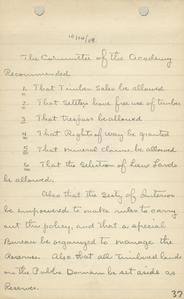 10/14/08
The Committee of the Academy
Recommended
1. That Timber Sales be allowed
2. That Settlers have free use of timber
3. That Trespass be allowed
4. That Right of way be granted
5. That Mineral Claims be allowed
6. That the Selection of Lieu Lands
be allowed.
Also that the Secty of Interior
be empowered to make rules to carry
out this policy, and that a special
Bureau be organized to manage the
Reserves. Also that all timbered lands
on the Public Domain be set aside as
Reserves.
37